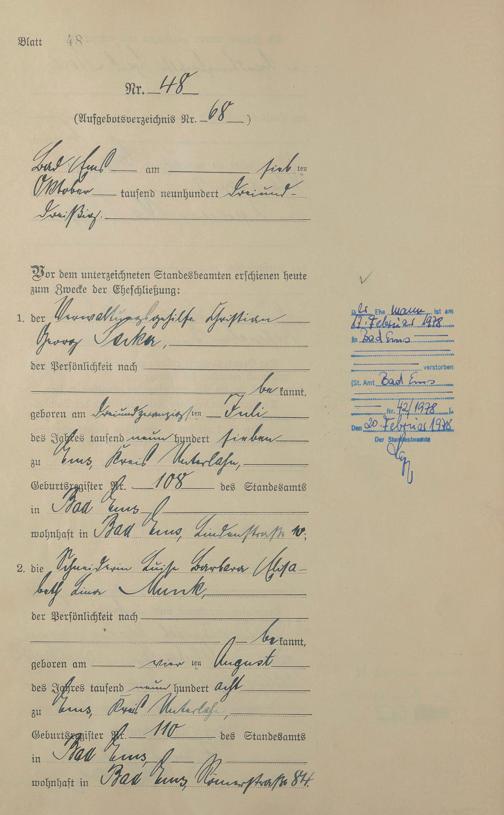 Blatt 48
Nr. 48
(Aufgebotsverzeichnis Nr. 68)
Bad Ems am sieb ten
Oktober tausend neunhundert dreiund-
dreißig.
Vor dem unterzeichneten Standesbeamten erschienen heute
zum Zwecke der Eheschließung:
1. der Verwaltungsgehilfe Christian
Georg
der Persönlichkeit nach
bekannt,
geboren am dreiundzwanzigsten Juli
des Jahres tausend neun hundert sieben
zu Ems, Kreis Unterlahn,
Geburtsregister Nr. 108 des Standesamts
in Bad Ems
wohnhaft in Bad Ems, Lindenstraße
2. die Schneiderin Luise Barbara Elisa-
beth Lina Munk,
der Persönlichkeit nach
bekannt,
geboren am vier ten August
des Jahres tausend neun hundert acht
zu Ems, Kreis Unterlahn,
Geburtsregister Nr. 110 des Standesamts
in Bad Ems,
wohnhaft in Bad Ems, Römerstraße 84.
Ehemann ist am
17. Februar 1978
in Bad Ems
verstorben
(St. Amt Bad Ems
Nr. 42/1978 ).
Den 20. Februar 1978
Der Standesbeamte